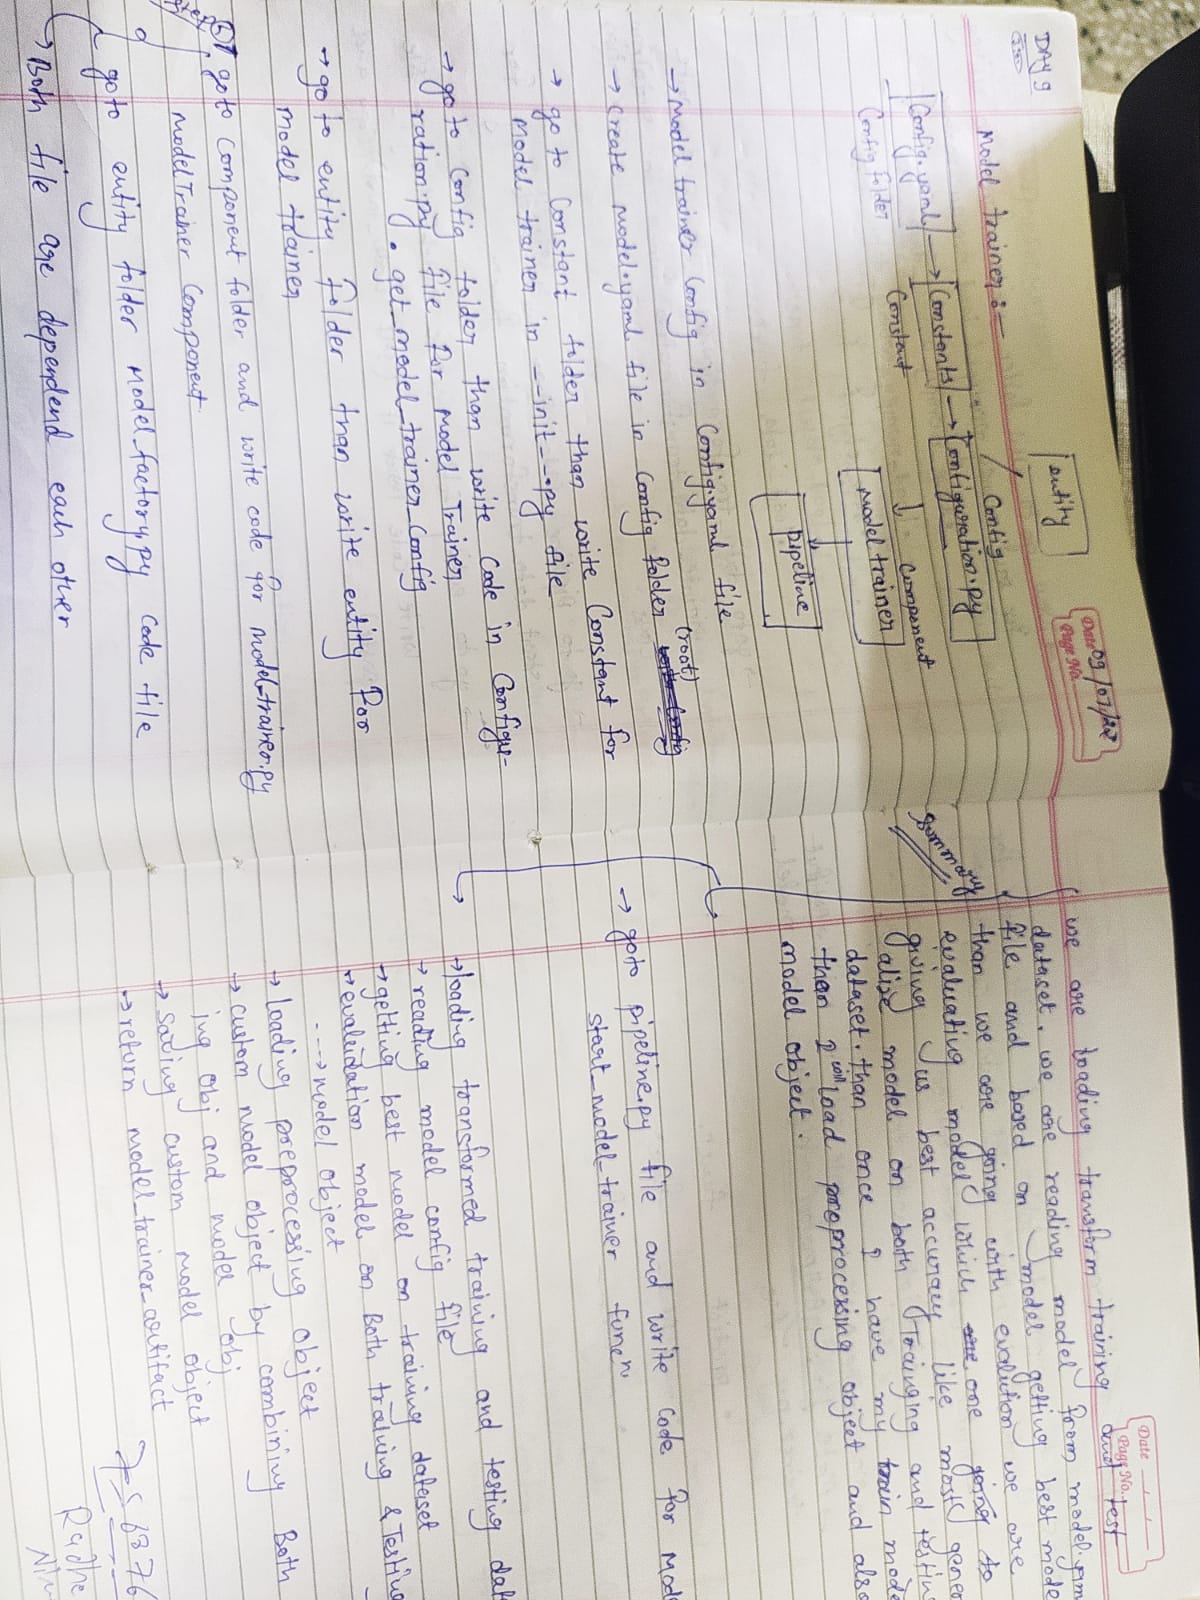 DAY 9
Date 09/07/22
Page No.
entity
Model trainer :-
Config
Config.yaml
Constants
Configuration.py
Config folder
Constant
Component
Model trainer
pipeline
→ Model trainer Config in Config.yaml file
→ Create model.yaml file in Config folder (root)
→ go to Constant folder than write Constant for
Model trainer in --init--.py file
→ go to Config folder than write Code in Configu-
ration.py file for Model Trainer
. get_model_trainer_Config
→ go to entity folder than write entity for
model trainer
goto Component folder and write code for model_trainer.py
ModelTrainer Component
goto entity folder Model_factory.py Code file
→ Both file are dependend each other
Date
Page No.
Summary
we are loading transform training and test
dataset. we are reading model from model.yam
file and based on model getting best mode
than we are going with evalution we are
evaluating model which one going to
giving us best accuracy like most gener
alise model on both Trainging and testin
dataset. than once I have my train mode
than I will load preprocessing object and also
model object.
→ goto pipeline.py file and write Code for Mod
start_model_trainer funcn
→ loading transformed training and testing dat
→ reading model config file
→ getting best model on training dataset
→ evaleidation model on Both training & Testing
----> model object
→ Loading preprocessing object
→ custom model object by combining Both
ing obj and model obj
→ saving custom model object
→ return model_trainer_artifact
6376
Radhe